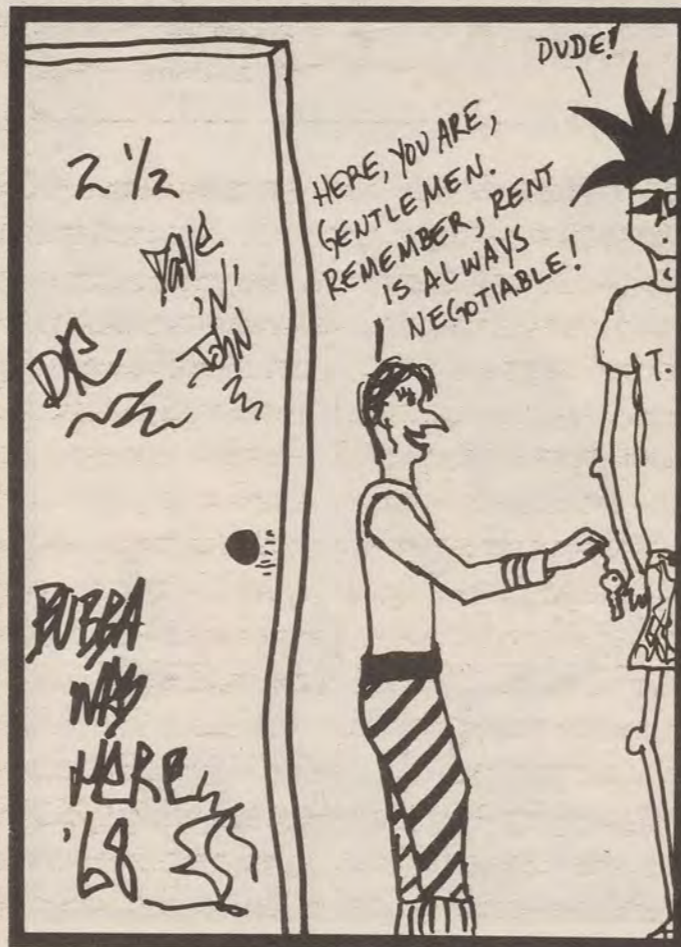 2 ½
DAVE
'N'
JOHN
BUBBA
WAS
HERE
'68
HERE, YOU ARE,
GENTLEMEN.
REMEMBER, RENT
IS ALWAYS
NEGOTIABLE!
DUDE!
T.